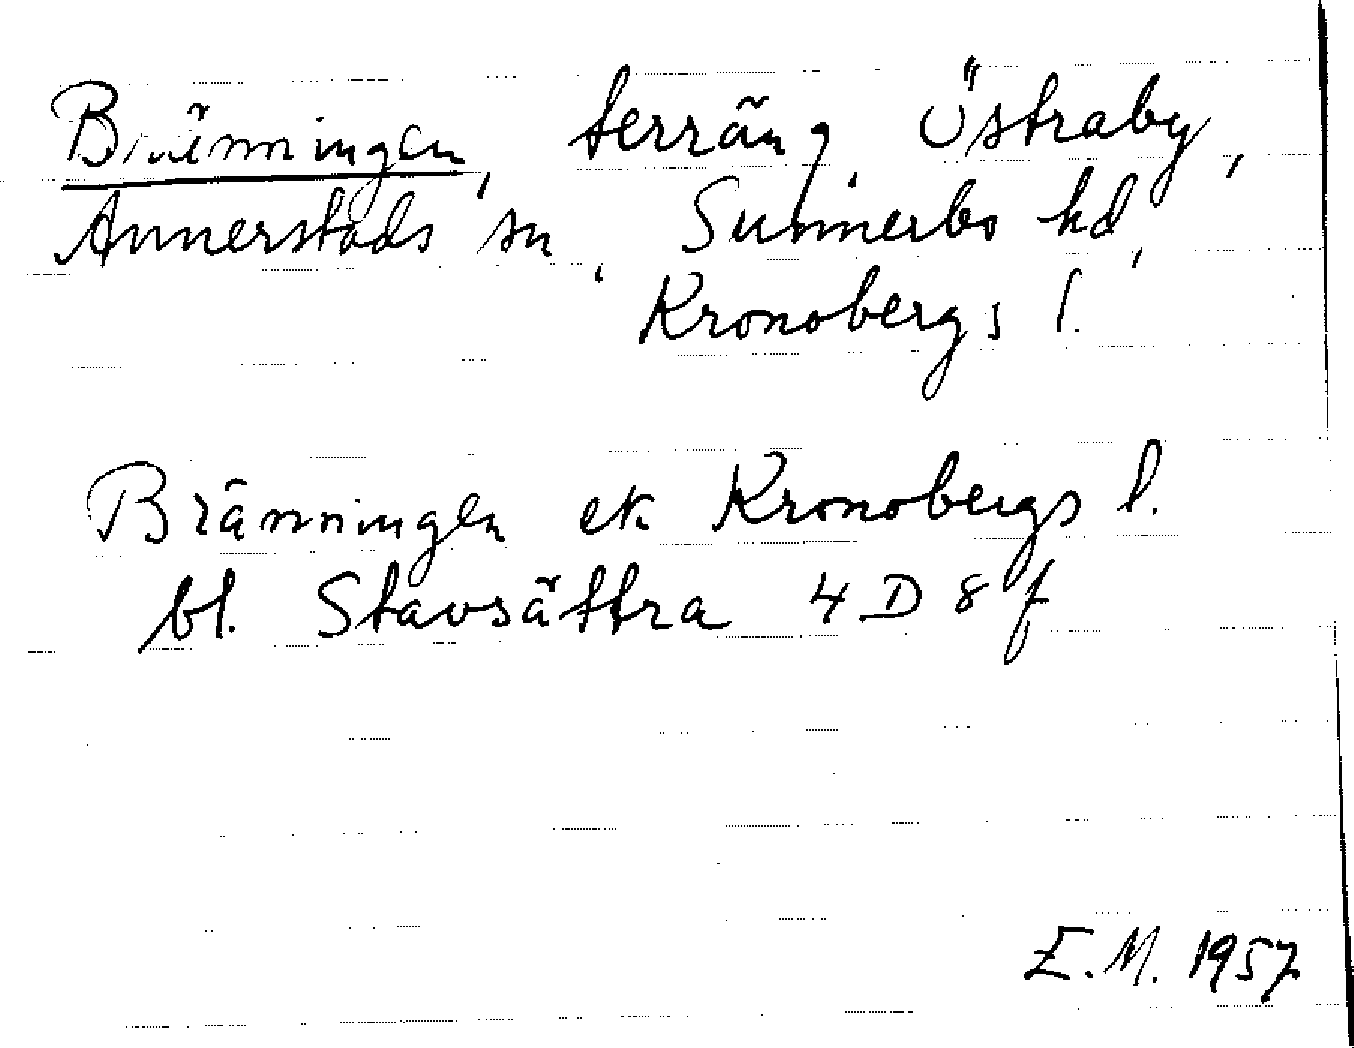 Bränningen, terräng, Östraby,
Annerstads sn, Sunnerbo hd,
Kronobergs l.
Bränningen ek Kronobergs l.
bl. Stavsättra 4D8f
E.M. 1957